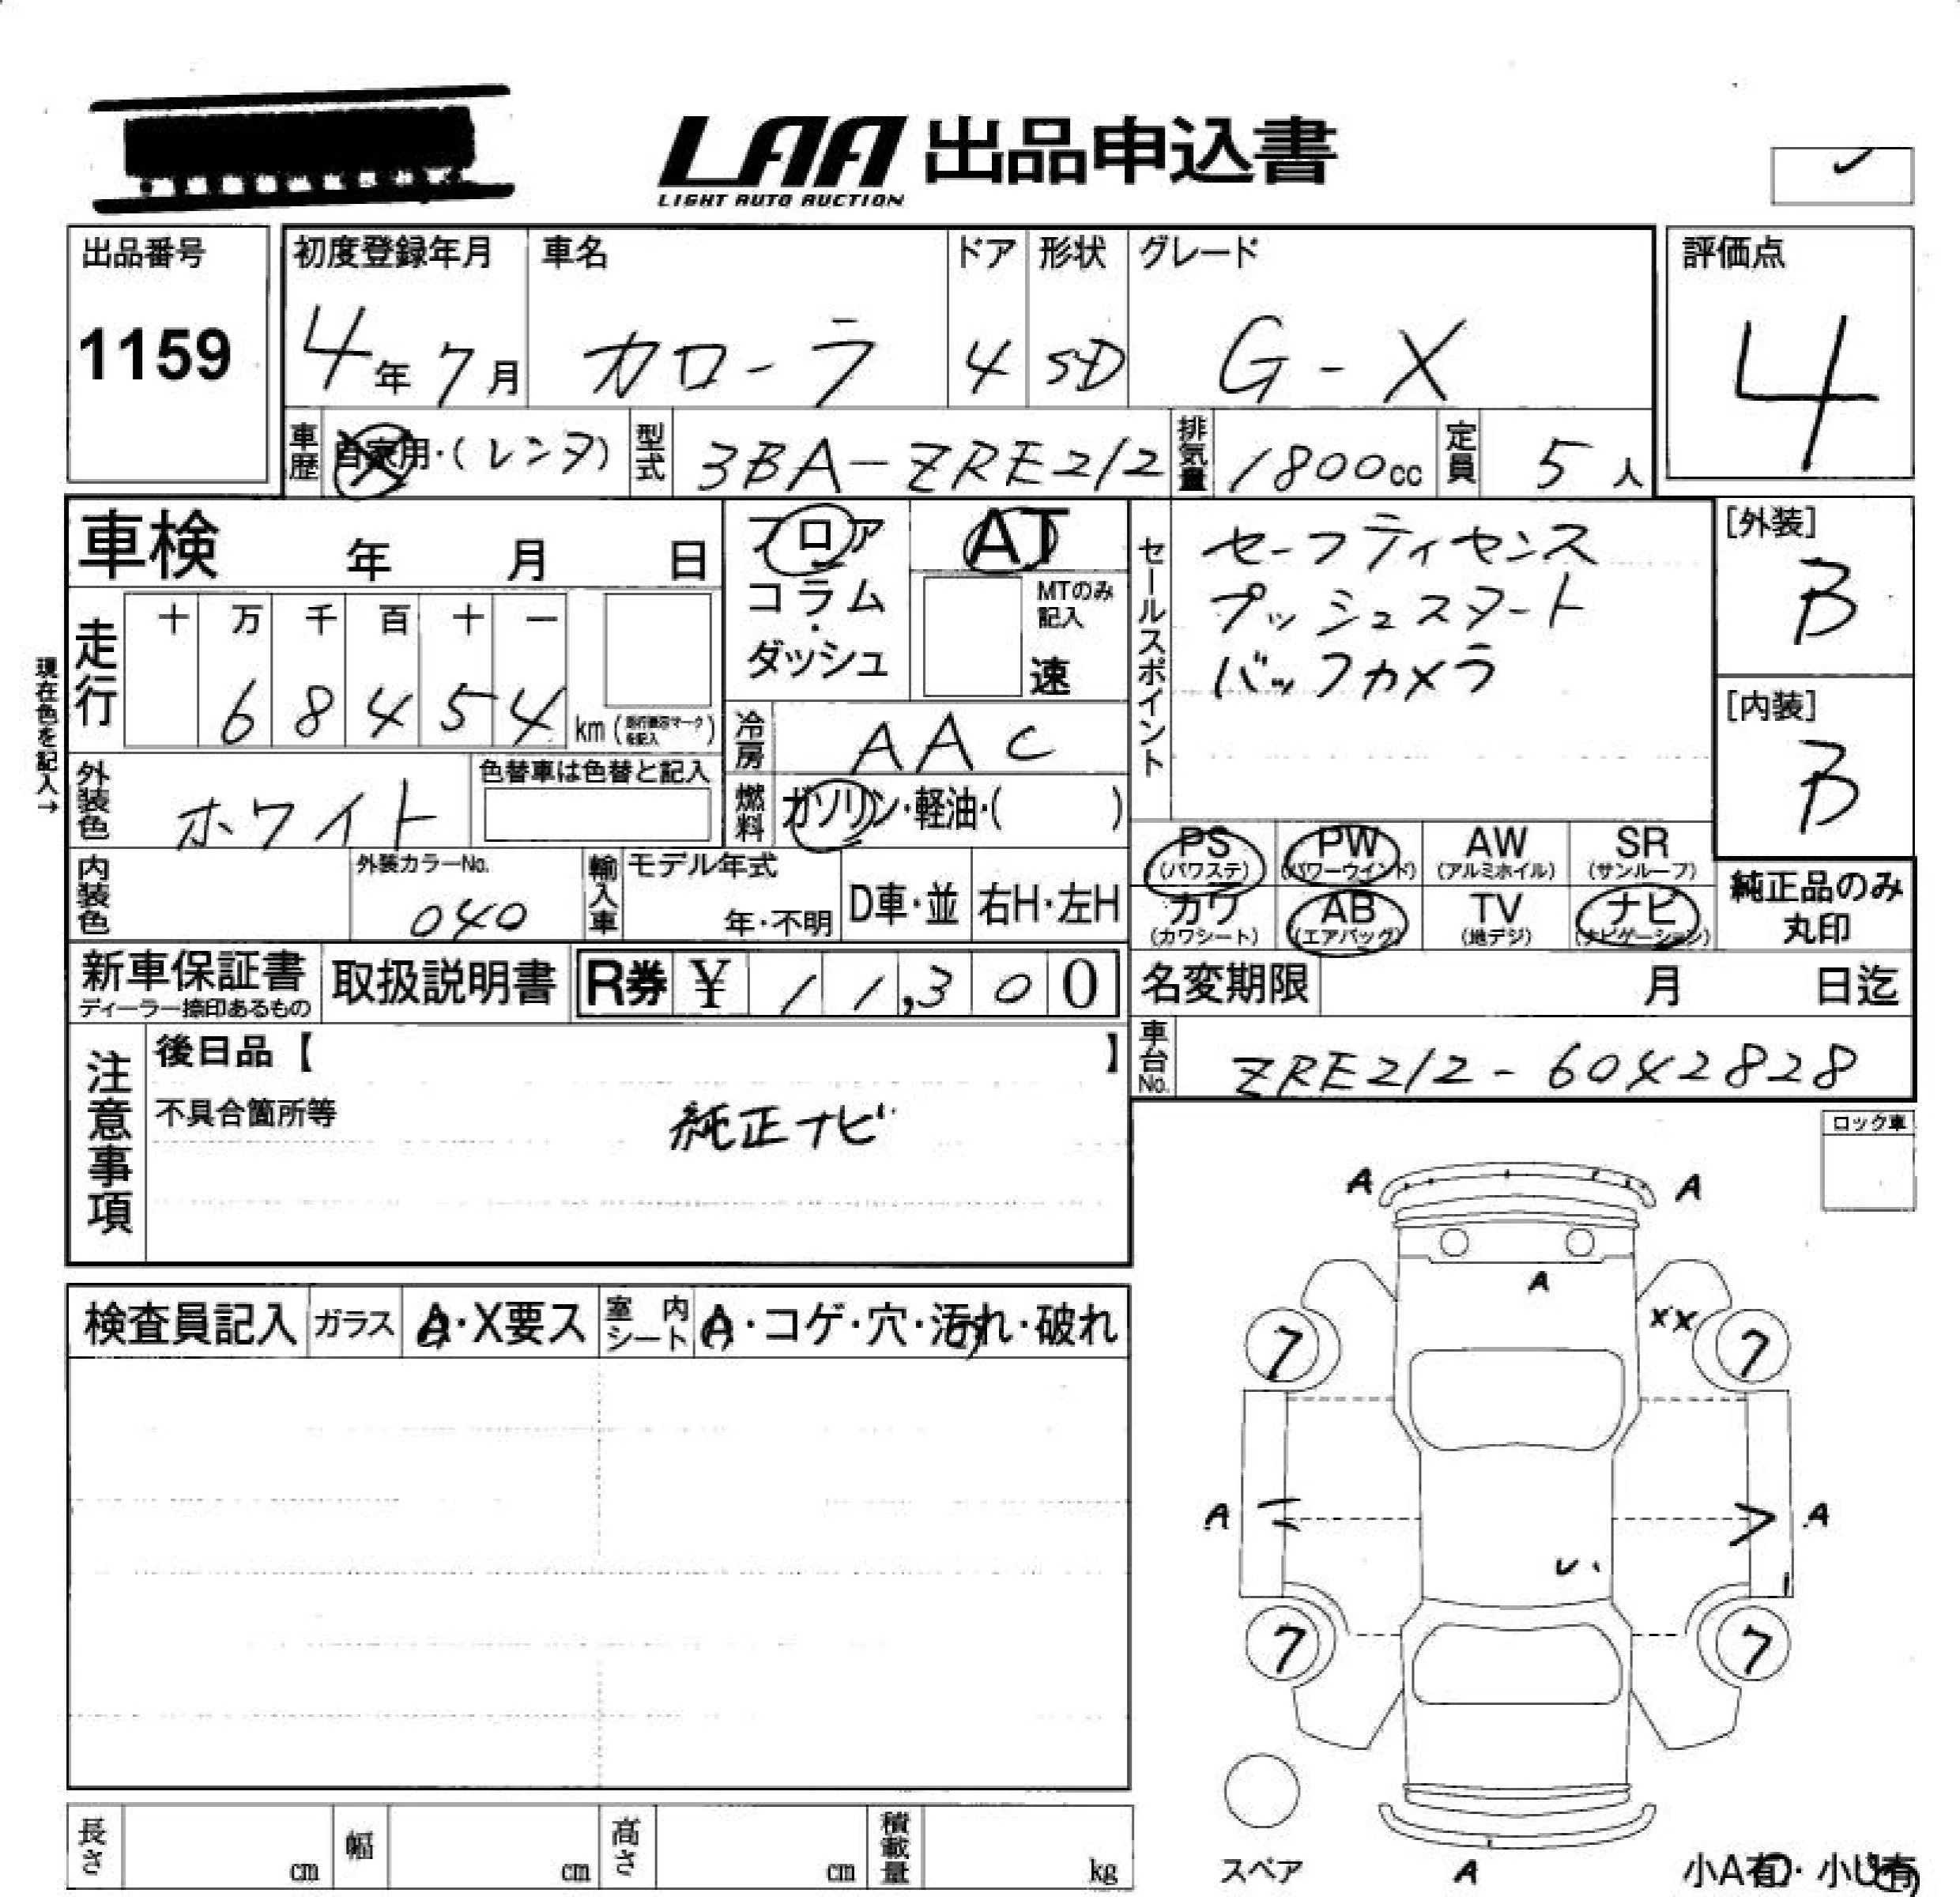 LAA 出品申込書
LIGHT AUTO AUCTION
出品番号
1159
初度登録年月
4年7月
車名
カローラ
ドア
4
形状
SD
グレード
G-X
評価点
4
車歴
自家用・(レンタ)
型式
3BA-ZRE212
排気量
1800cc
定員
5人
車検 年 月 日
フロア
コラム・
ダッシュ
AT
MTのみ
記入
速
セールスポイント
セーフティセンス
プッシュスタート
バックカメラ
[外装]
B
[内装]
B
現在色を記入→
走行
十 万 千 百 十 一
6 8 4 5 4 km
冷房
AAC
燃料
ガソリン・軽油・( )
外装色
ホワイト
色替車は色替と記入
内装色
外装カラーNo.
040
輸入車
モデル年式
年・不明
D車・並
右H・左H
PS PW AW SR
(パワステ) (パワーウインド) (アルミホイル) (サンルーフ)
カワ AB TV ナビ
(カワシート) (エアバッグ) (地デジ) (ナビゲーション)
純正品のみ
丸印
新車保証書
ディーラー捺印あるもの
取扱説明書
R券 ¥ 11,300
名変期限 月 日迄
車台No.
ZRE212-6042828
注意事項
後日品【 】
不具合箇所等
純正ナビ
ロック車
検査員記入
ガラス
A・X要ス
室内シート
A・コゲ・穴・汚れ・破れ
A A
A
XX
7 7
A A
U
7 7
スペア
A
小A有・小U有
長さ cm
幅 cm
高さ cm
積載量 kg